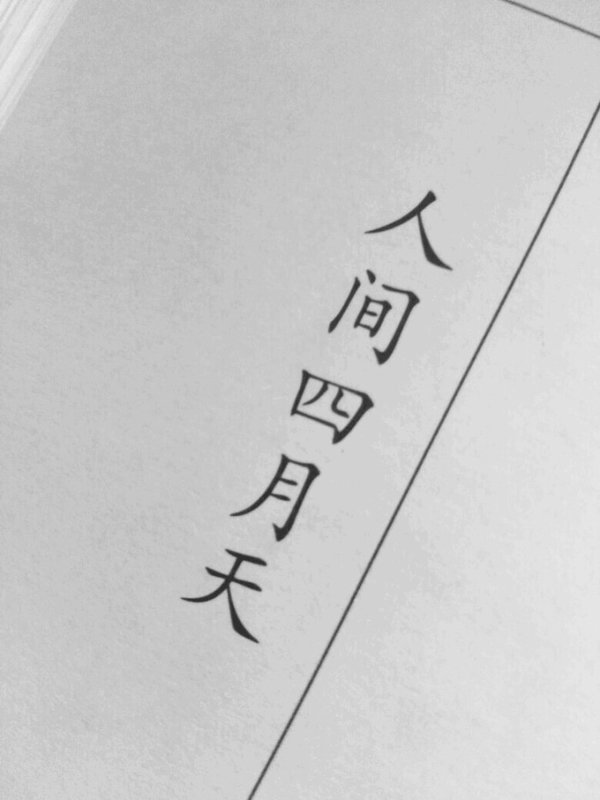 人间四月天